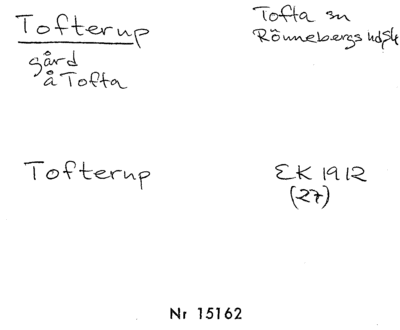 Tofterup
gård
å Tofta
Tofta sn
Rönnebergs hd Sk
Tofterup
EK 1912
(27)
Nr 15162